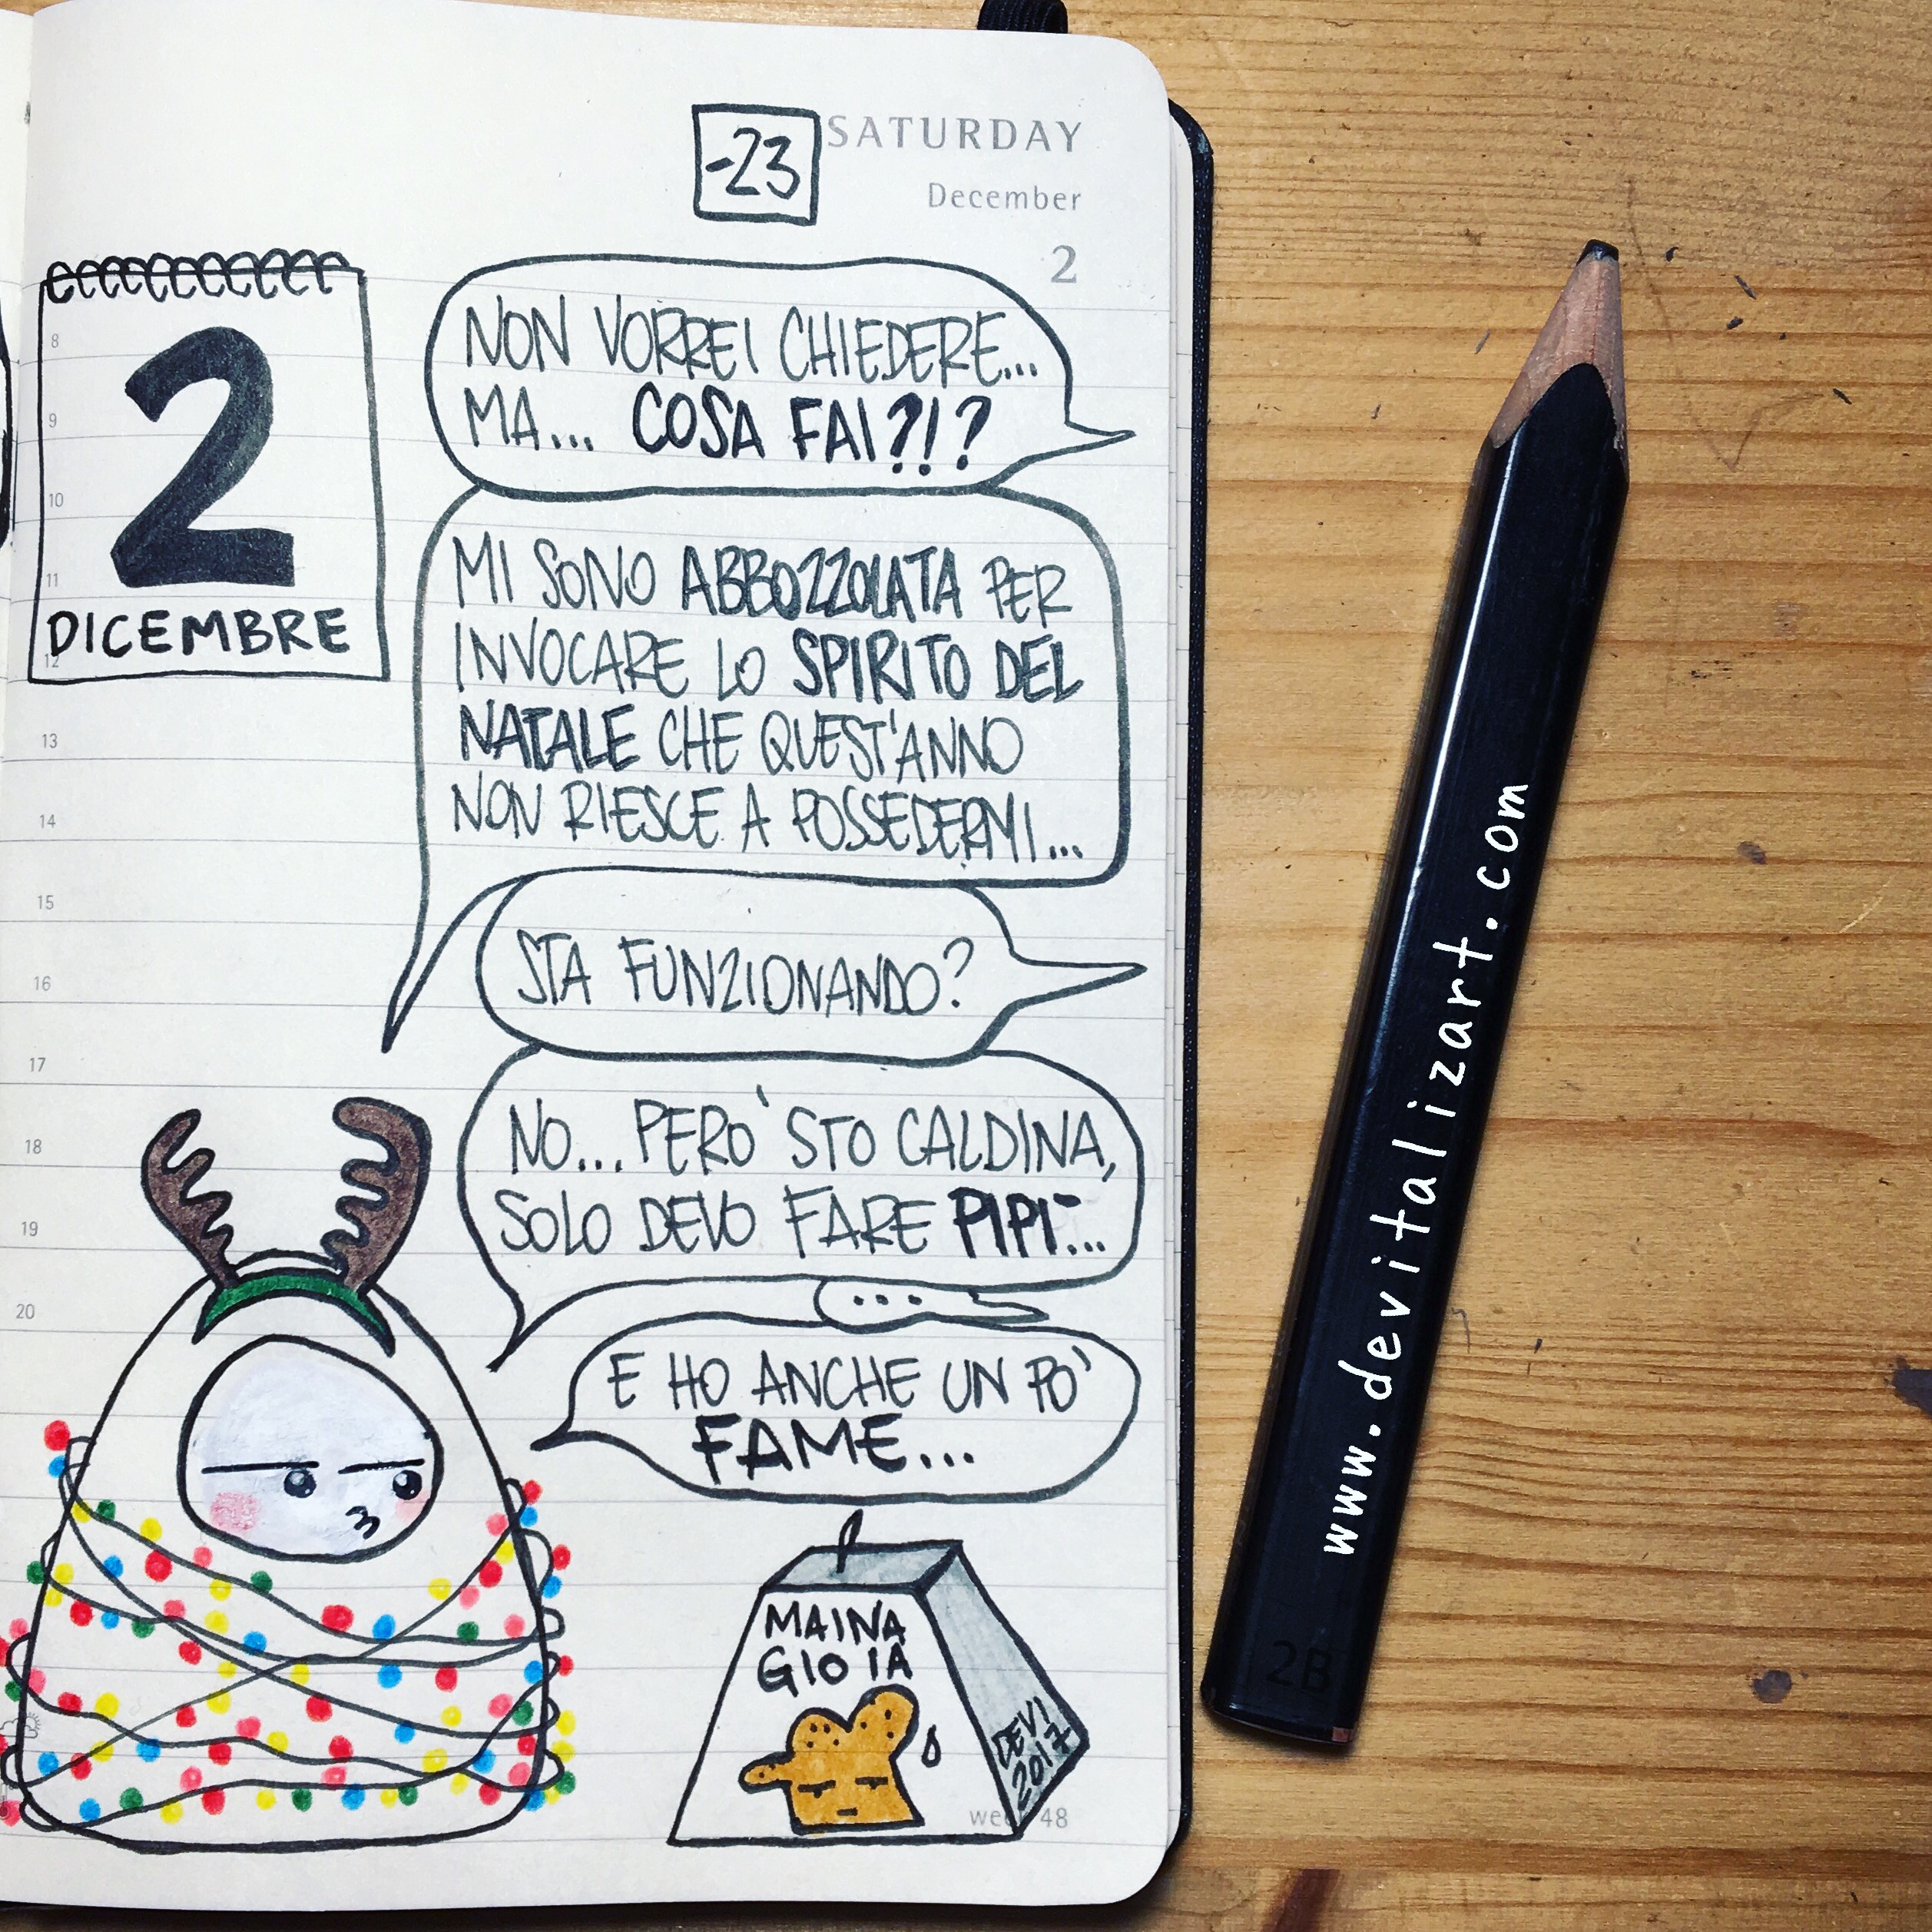 -23
SATURDAY
December
2
2
DICEMBRE
NON VORREI CHIEDERE...
MA... COSA FAI?!?
MI SONO ABBOZZOLATA PER
INVOCARE LO SPIRITO DEL
NATALE CHE QUEST'ANNO
NON RIESCE A POSSEDERMI...
STA FUNZIONANDO?
NO... PERO' STO CALDINA,
SOLO DEVO FARE PIPI'...
...
E HO ANCHE UN PO'
FAME...
MAINA
GIOIA
DEVI
2017
week 48
8
9
10
11
12
13
14
15
16
17
18
19
20
www.devitalizart.com
2B